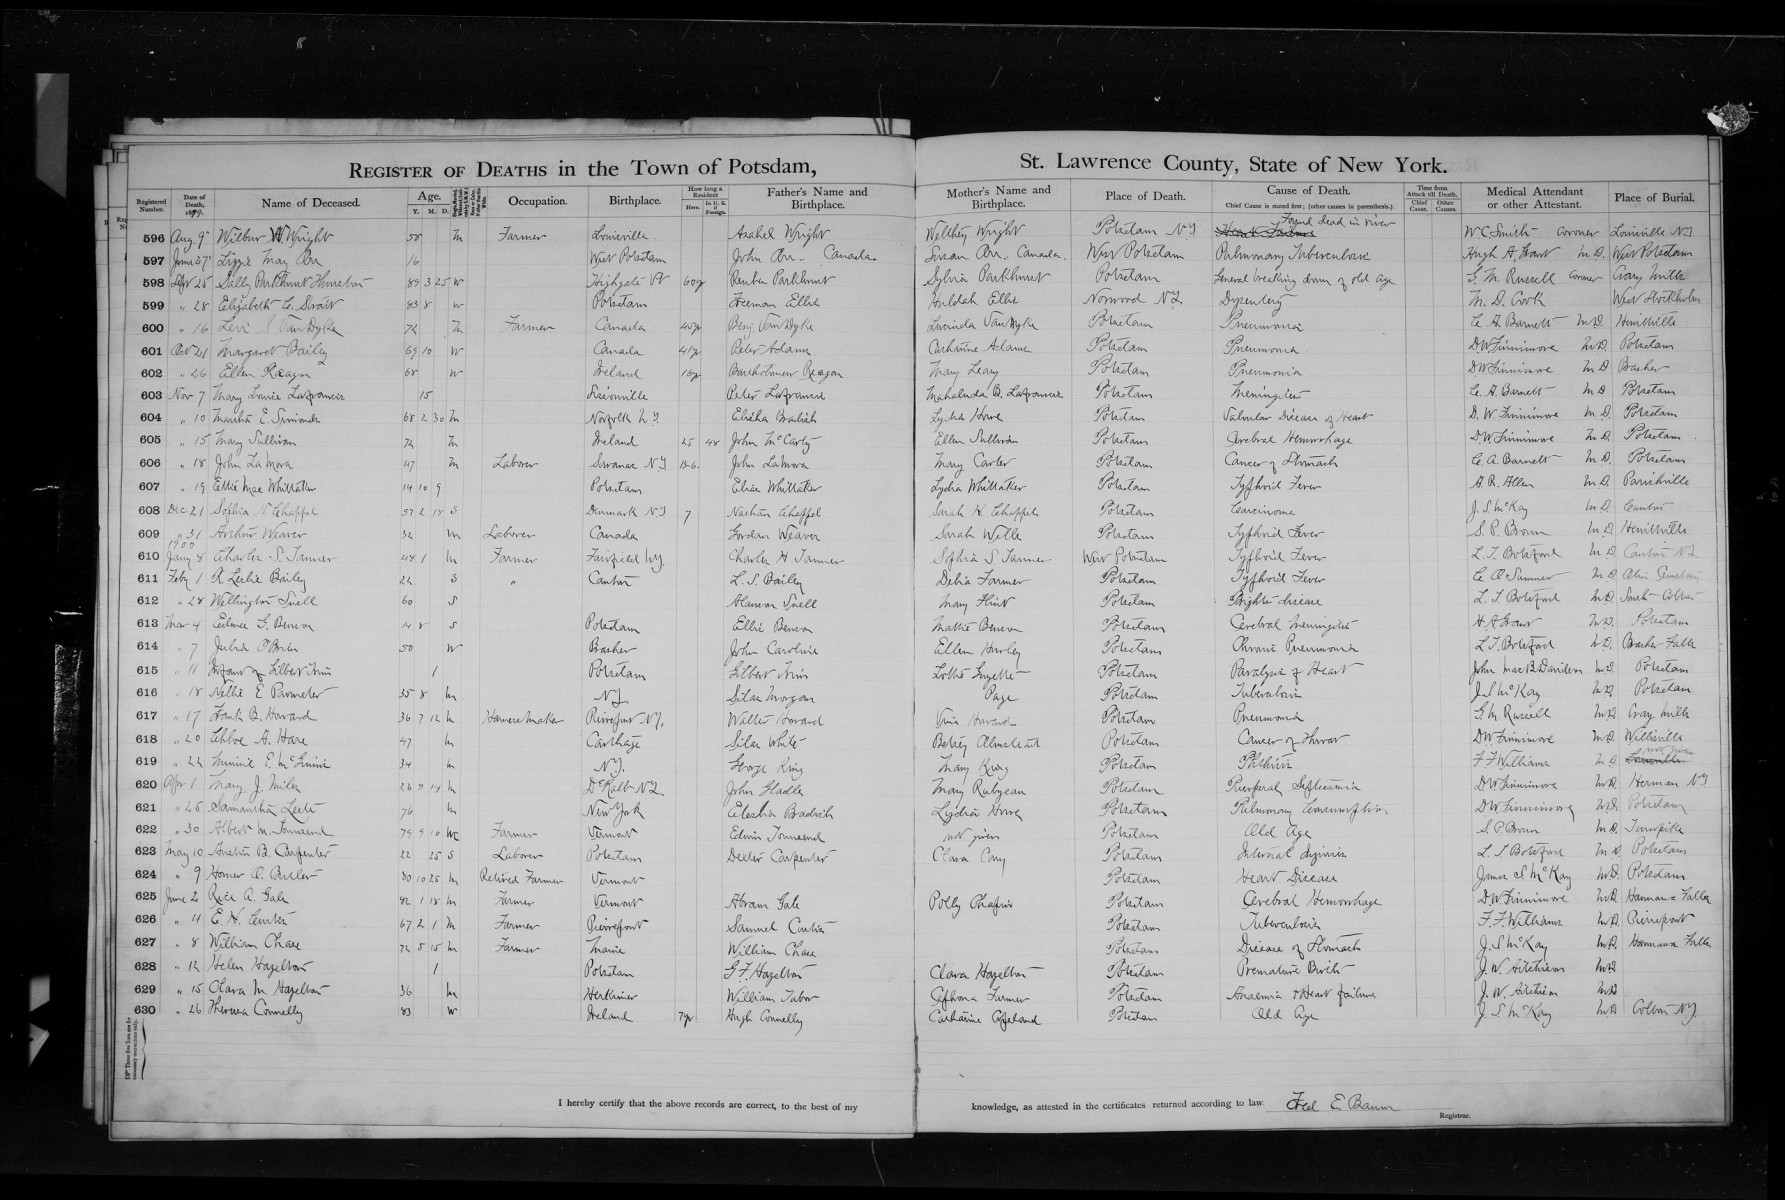 Register of Deaths in the Town of Potsdam, St. Lawrence County, State of New York.
Registered Number. Date of Death, 1899. Name of Deceased. Age. Y. M. D. Occupation. Birthplace. How long a Resident Here. In U. S. if Foreign. Father's Name and Birthplace. Mother's Name and Birthplace. Place of Death. Cause of Death. Chief Cause is stated first; (other causes in parenthesis.) Time from Attack till Death. Chief Cause. Other Causes. Medical Attendant or other Attestant. Place of Burial.
596 Aug. 9 Wilbur W. Wright 58 M Farmer Louisville Asahel Wright Wright Potsdam N.Y. Found dead in river W C Smith Coroner Louisville N.Y
597 June 27 Lizzie May Orr 16 West Potsdam John Orr - Canada Susan Orr. Canada West Potsdam Pulmonary Tuberculosis Hugh A. Grant M.D. West Potsdam
598 Sept 25 Sally Parkhurst Thurston 89 3 25 W Highgate Vt 60 yr Reuben Parkhurst Sylvia Parkhurst Potsdam General breaking down of old age G. M. Russell Coroner Crary Mills
599 " 28 Elizabeth C. 83 8 W Potsdam Freeman Ellis Huldah Ellis Norwood N.Y. Dysentery M. D. Cook West Stockholm
600 " 16 Levi S VanDyke 72 M Farmer Canada 40 yr Benj VanDyke Lucinda VanDyke Potsdam Pneumonia C. A. Barnett M.D. Hewittville
601 Oct 21 Margaret Bailey 69 10 W Canada 41 yr Peter Adams Catharine Adams Potsdam Pneumonia D W Finnimore M.D. Potsdam
602 " 26 Ellen Reagan 68 W Ireland 16 yr Bartholomew Reagan Mary Leary Potsdam Pneumonia D W Finnimore M D Brasher
603 Nov 7 Mary Louise Lafrancis 15 Sissonville Peter Lafrancis Mahalinda B. Lafrancis Potsdam Meningitis C. A. Barnett M D Potsdam
604 " 10 Martha E. Simonds 68 2 30 M Norfolk N Y. Elisha Bradish Lydia Howe Potsdam Valvular Disease of Heart D. W. Finnimore M D. Potsdam
605 " 15 Mary Sullivan 72 M Ireland 25 48 John McCarty Ellen Sullivan Potsdam Cerebral Hemorrhage D W Finnimore M D. Potsdam
606 " 18 John LaMora 47 M Laborer Saranac N.Y. John LaMora Mary Carter Potsdam Cancer of Stomach C. A. Barnett M D. Potsdam
607 " 19 Effie Mae Whittaker 14 10 9 Potsdam Elias Whittaker Lydia Whittaker Potsdam Typhoid Fever A. R. Allen M D. Parishville
608 Dec 21 Sophia N Chappel 57 2 18 S Denmark N Y 7 Nathan Chappel Sarah H. Chappel Potsdam Carcinoma J. S McKay M D. Canton
609 " 31 Arthur Weaver 32 M Laborer Canada Gordon Weaver Sarah Wells Potsdam Typhoid Fever S. P. Brown M D. Hewittville
610 1900 Jany 8 Charles S. Tanner 48 1 M Farmer Fairfield Charles H Tanner Sophia S Tanner West Potsdam Typhoid Fever L. T. Botsford M D Canton N.Y.
611 Feby 1 R Leslie Bailey 22 S " Canton L. S. Bailey Delia Farmer Potsdam Typhoid Fever C A Sumner M D
612 " 28 Wellington Snell 60 S Alanson Snell Mary Flint Potsdam Brights disease L. T. Botsford M.D. South Colton
613 Mar 4 Edmee G. Benson 14 8 S Potsdam Ellis Benson Mattie Benson Potsdam Cerebral Meningitis H A Grant M.D. Potsdam
614 " 7 Julia O'Brien 50 W Brasher John Caroline Ellen Hurley Potsdam Chronic Pneumonia L. T. Botsford M.D. Brasher Falls
615 " 11 Infant of Gilbert 1 Potsdam Gilbert Lottie Potsdam Paralysis of Heart John MacB Davidson M.D. Potsdam
616 " 18 Nellie E Parmeter 35 8 M N.Y. Silas Morgan Page Potsdam Tuberculosis J. S McKay M.D. Potsdam
617 " 17 Frank B. Howard 36 7 12 M Harness Maker Pierrepont N.Y. Walter Howard Howard Potsdam Pneumonia G. M. Russell M.D. Crary Mills
618 " 20 Chloe A. Hare 47 M Carthage Silas White Betsey Olmsted Potsdam Cancer of Throat D W Finnimore M.D. Willisville
619 " 22 Minnie E. McGinnis 34 M N.Y. George King Mary King Potsdam Phthisis F F Williams M D not given
620 Apr 1 Mary J. Miles M DeKalb N.Y. John Hadlo Mary Potsdam Puerperal Septicaemia D W Finnimore M.D. Herman N Y
621 " 25 Samantha Leete 76 M New York Bradish Lydia Howe Potsdam Pulmonary Consumption D W Finnimore M D Potsdam
622 " 30 Albert M. Townsend 79 9 10 Farmer Vermont Edwin Townsend not given Potsdam Old Age S P Brown M.D. Turnpike
623 May 10 Austin B. Carpenter 22 25 S Laborer Potsdam Dexter Carpenter Clara Potsdam Internal Injuries L. T Botsford M D. Potsdam
624 " 9 Homer O. Butler 80 10 25 M Retired Farmer Vermont Potsdam Heart Disease James S McKay M.D. Potsdam
625 June 2 Rice A. Gale 82 1 18 M Farmer Vermont Abram Gale Polly Potsdam Cerebral Hemorrhage D W Finnimore M.D. Hannawa Falls
626 " 4 E. H. Curtis 67 2 1 M Farmer Pierrepont Samuel Curtis Potsdam Tuberculosis F. F Williams M.D. Pierrepont
627 " 8 William Chase 72 5 15 M Farmer Maine William Chase Potsdam Disease of Stomach J. S McKay M.D. Hannawa Falls
628 " 12 Helen Hazelton 1 Potsdam G. F. Hazelton Clara Hazelton Potsdam Premature Birth J. N. Aitchison M.D.
629 " 15 Clara M. Hazelton 36 M Herkimer William Tabor Farmer Potsdam Anaemia + Heart failure J. N. Aitchison M.D.
630 " 26 Theresa Connelly 83 W Ireland 7 yr Hugh Connelly Catharine Copeland Potsdam Old Age J. S McKay M.D. Colton N.Y.
These five lines are for necessary corrections only.
I hereby certify that the above records are correct, to the best of my knowledge, as attested in the certificates returned according to law. Fred E. Baum
Registrar.